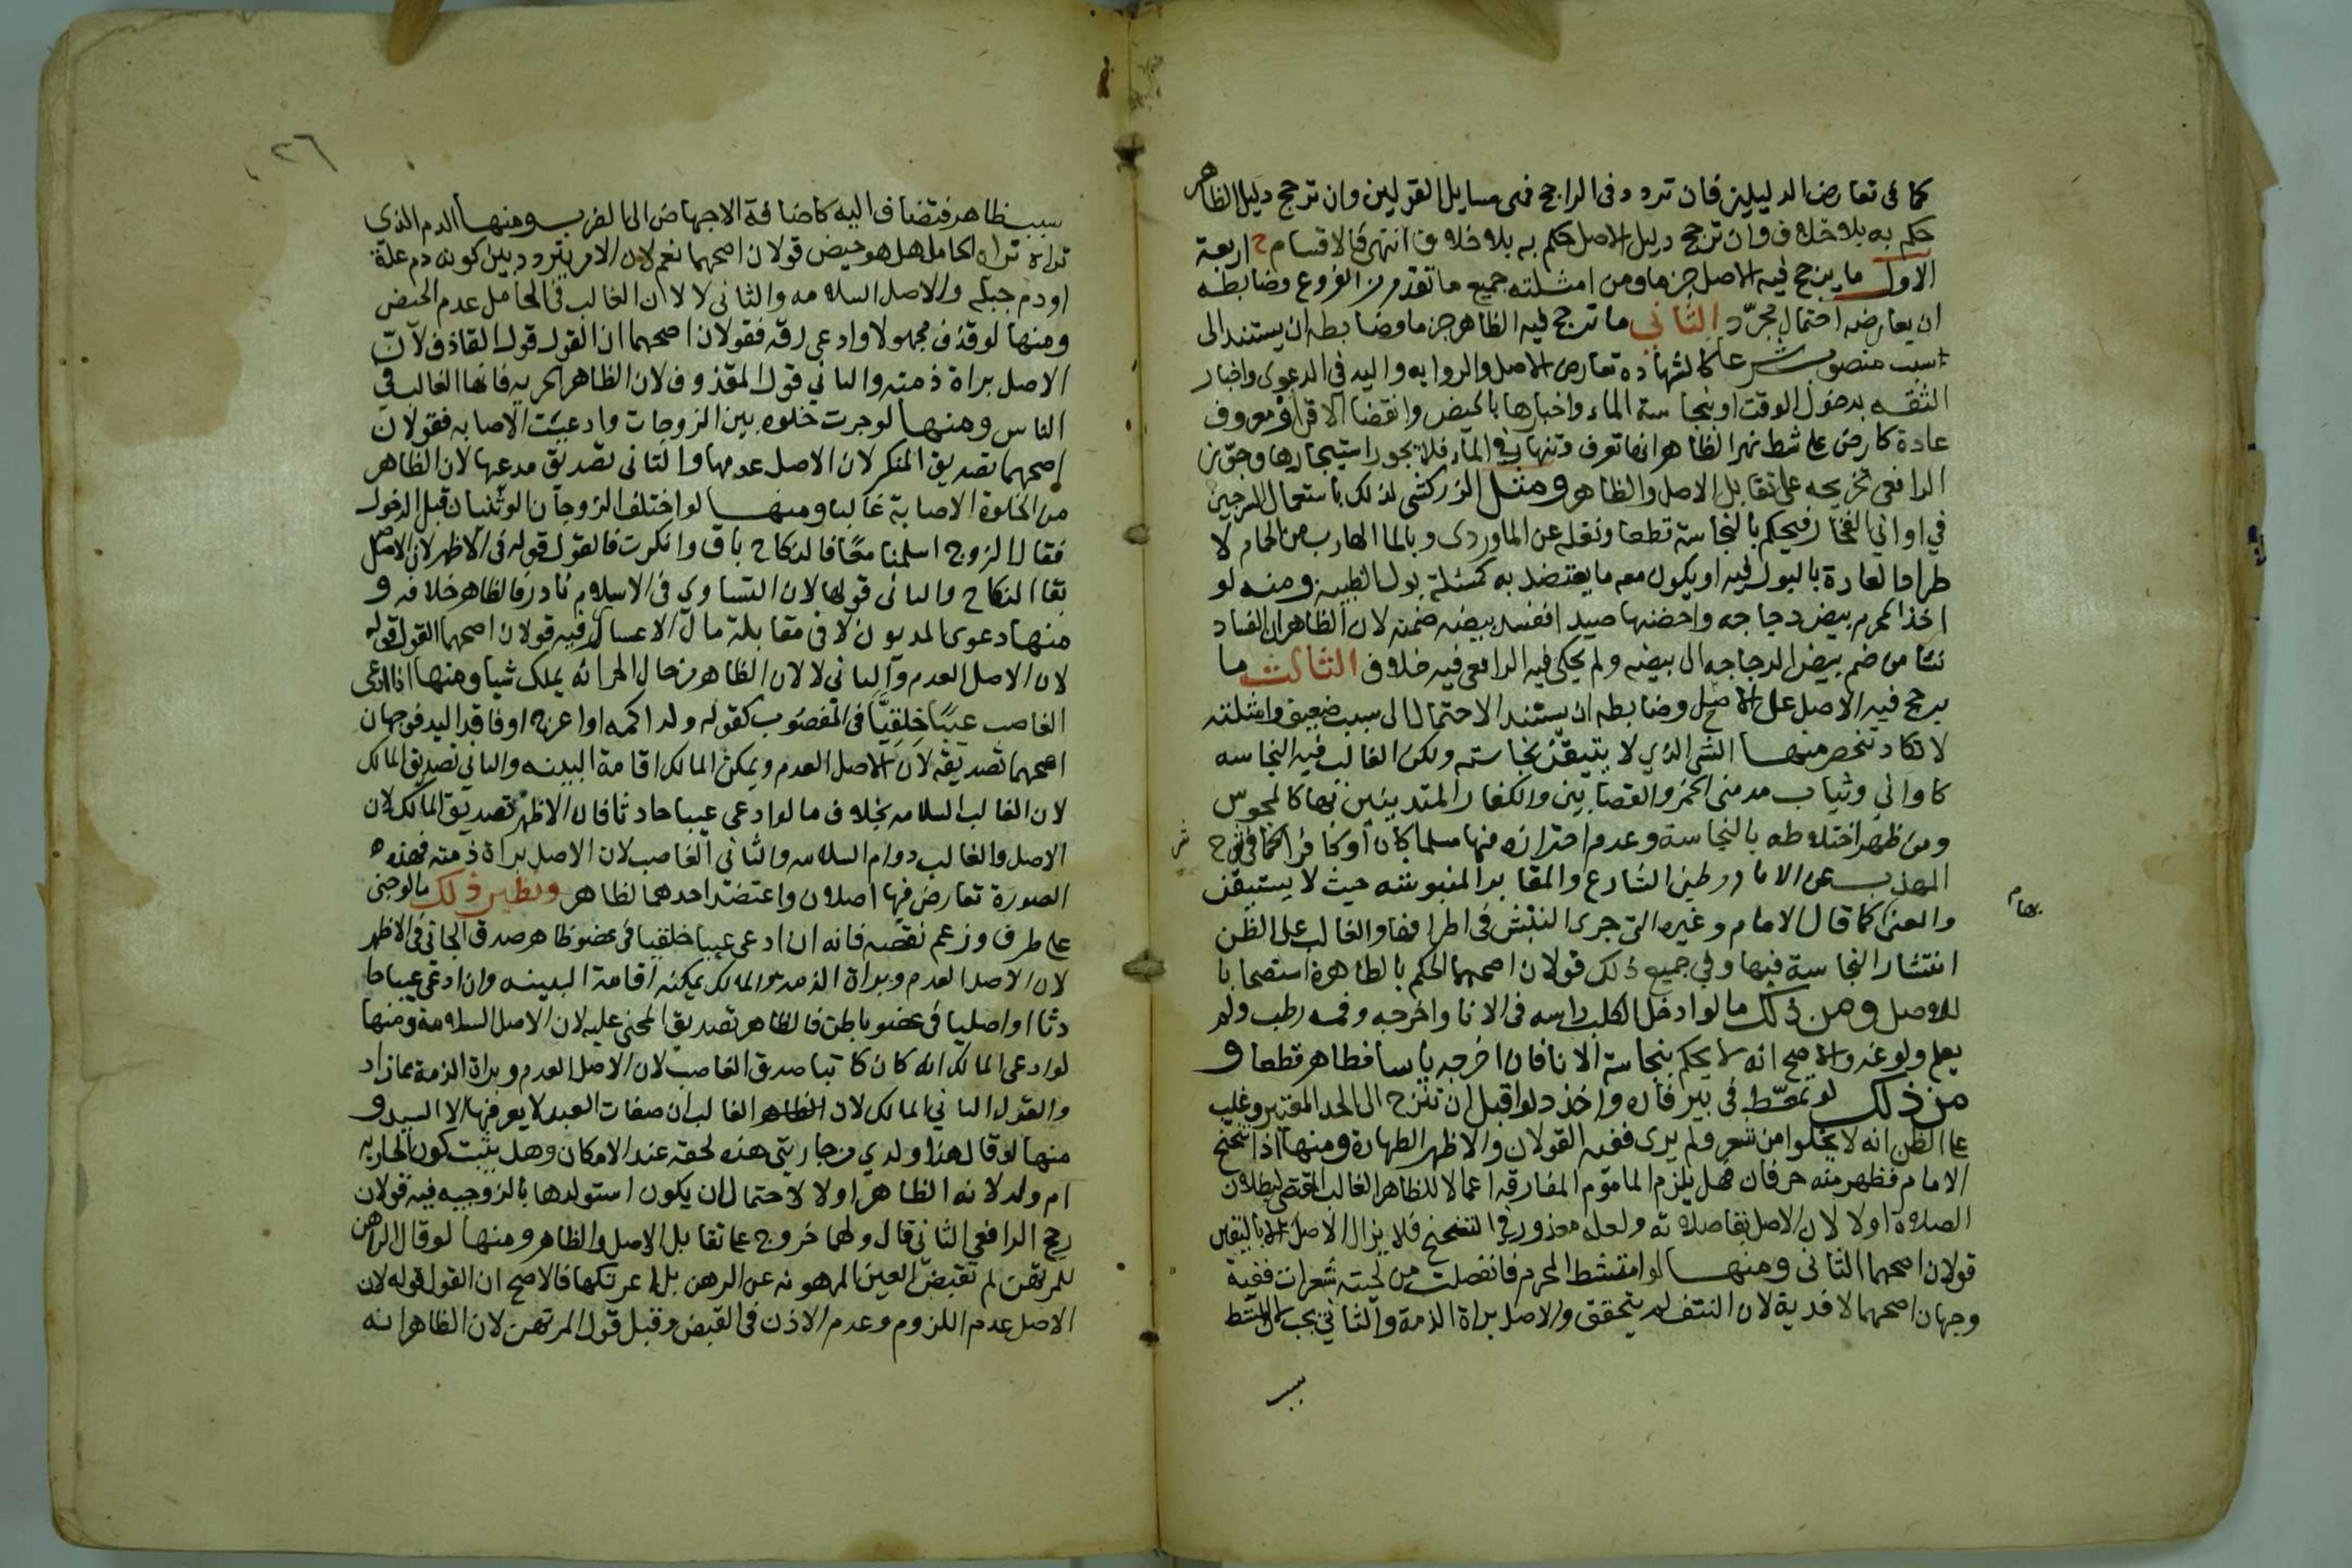 كما فى تعارض الدليلين فان تردد فى الراجح فهى مسايل القولين وان ترجح دليل الظاهر
حكم به بلا خلاف وان ترجح دليل الاصل حكم به بلا خلاف انتهى فالاقسام ح اربعة
الاول ما يرجح فيه الاصل جزما ومن امثلته جميع ما تقدم من الفروع وضابطه
ان يعارضه احتمال مجرّد الثانى ما ترجح فيه الظاهر جزما وضابطه ان يستند الى
سبب منصوب شرعا كالشهادة تعارض الاصل والروايه واليد فى الدعوى واخبار
الثقه بدخول الوقت او بنجاسة الماء واخبارها بالحيض وانقضا الاقرا او معروف
عادة كارض على شط نهر الظاهر انها تغرق وتنهار فى الماء فلا يجوز استيجارها وجوّز
الرافعى تخريجه على تقابل الاصل والظاهر ومثل الزركشى لذلك باستعمال السرجين
فى اوانى الفخار فيحكم بالنجاسة قطعا ونقله عن الماوردى وبالما الهارب من الحمام لا
طراد العادة بالبول فيه او يكون معه ما يعتضد به كمسئلة بول الظبية ومنه لو
اخذ المحرم بيض دجاجه واحضنها صيدا ففسد بيضه ضمنه لان الظاهر ان الفساد
نشا من ضم بيض الدجاجه ال بيضه ولم يحكى فيه الرافعى فيه خلاف الثالث ما
يرجح فيه الاصل على الاصح وضابطه ان يستند الاحتمال الى سبب ضعيف وامثلته
لا تكاد تنحصر منها الشى الذي لا يتيقن نجاسته ولكن الغالب فيه النجاسه
كاوانى وثياب مدمنى الخمر والقصابين والكفار المتدينين بها كالمجوس
ومن ظهر اختلاطه بالنجاسة وعدم احترازه منها مسلما كان او كافرا كما فى شرح
المهذب عن الامام وطين الشارع والمقابر المنبوشه حيث لا يستيقن
والمعنى كما قال الامام وغيره التى جرى النبش فى اطرافها والغالب على الظن
انتشار النجاسة فيها وفى جميع ذلك قولان اصحهما الحكم بالطاهرة استصحابا
للاوصل ومن ذلك ما لو ادخل الكلب راسه فى الانا واخرجه وفمه رطب ولم
يعلم ولوغه والاصح انه لا يحكم بنجاسة الانا فان اخرجه يابسا فطاهر قطعا و
من ذلك لو تمعّط فى بير فأره واخذ دلوا قبل ان تنزح الى الحد المعتبر وغلب
على الظن انه لا يخلوا من شعر ولم يرى ففيه القولان والاظهر الطهارة ومنها اذا تنحنح
الامام فظهر منه حرفان فهل يلزم الماموم المفارقه اعمالا للظاهر الغالب المقتضى لبطلان
الصلاة او لا لان الاصل بقا صلاته ولعله معذور فى التنحنح فلا يزال الاصل الا باليقين
قولان اصحهما الثانى ومنها لو امتشط المحرم فانفصلت من لحيته شعرات ففيه
وجهان اصحهما لا فدية لان النتف لم يتحقق والاصل براة الذمة والثانى يجب لان المشط
سبب
٢٦
سبب ظاهر فتضاف اليه كاضافة الاجهاض الى الضرب ومنها الدم الذى
تراه تراه الحامل هل هو حيض قولان اصحهما نعم لان الامر يتردد بين كونه دم علة
او دم جبلة والاصل السلامه والثانى لا لان الغالب فى الحامل عدم الحيض
ومنها لو قذف مجهولا وادعى رقه فقولان اصحهما ان القول قول القاذف لانّ
الاصل براة ذمته والثانى قول المقذوف لان الظاهر الحريه فانها الغالب فى
الناس ومنها لو جرت خلوه بين الزوجات وادعيت الاصابه فقولان
اصحهما تصديق المنكر لان الاصل عدمها والثانى تصديق مدعيها لان الظاهر
من الخلوة الاصابة غالبا ومنها لو اختلف الزوجان الوثنيان قبل الدخول
فقال الزوج اسلمنا معًا فالنكاح باق وانكرت فالقول قوله فى الاظهر لان الاصل
بقا النكاح والثانى قولها لان التساوى فى الاسلام نادر فالظاهر خلافه و
منها دعوى المديون لا فى مقابلة مال الاعسار فيه قولان اصحهما القول قوله
لان الاصل العدم والثانى لا لان الظاهر من حال الحر انه يملك شيا ومنها اذا ادعى
الغاصب عيبًا خلقيًّا فى المغصوب كقوله ولد اكمه او اعرج او فاقد اليد فوجهان
اصحهما تصديقه لان الاصل العدم ويمكن المالك اقامة البينه والثانى تصديق المالك
لان الغالب السلامه بخلاف ما لو ادعى عيبا حادثا فان الاظهر تصديق المالك لان
الاصل والغالب دوام السلامه والثانى الغاصب لان الاصل براة ذمته فهذه
الصورة تعارض فيها اصلان واعتضد احدهما لظاهر ونظير ذلك ما لو جنى
على طرف وزعم نقصه فانه ان ادعى عيبا خلقيا فى عضو ظاهر صدق الجانى فى الاظهر
لان الاصل العدم وبراة الذمه والمالك يمكنه اقامة البينه وان ادعى عيبا حا
دثا او اصليا فى عضو باطن فالظاهر تصديق المجنى عليه لان الاصل السلامة ومنها
لو ادعى المالك انه كان كاتبا صدق الغاصب لان الاصل العدم وبراة الذمة مما زاد
والقول الثانى المالك لان الظاهر الغالب ان صفات العبد لا يعرفها الا السيد و
منها لو قال هذا ولدي من جاريتى هذه لحقه عند الامكان وهل يثبت كون الجاريه
ام ولد لانه الظاهر او لا لاحتمال ان يكون استولدها بالزوجيه فيه قولان
رجح الرافعى الثانى قال ولهما خروج على تقابل الاصل والظاهر ومنها لو قال الراهن
للمرتهن لم تقبض العين المرهونه عن الرهن بل اعرتكها فالاصح ان القول قوله لان
الاصل عدم اللزوم وعدم الاذن فى القبض وقيل قول المرتهن لان الظاهر انه